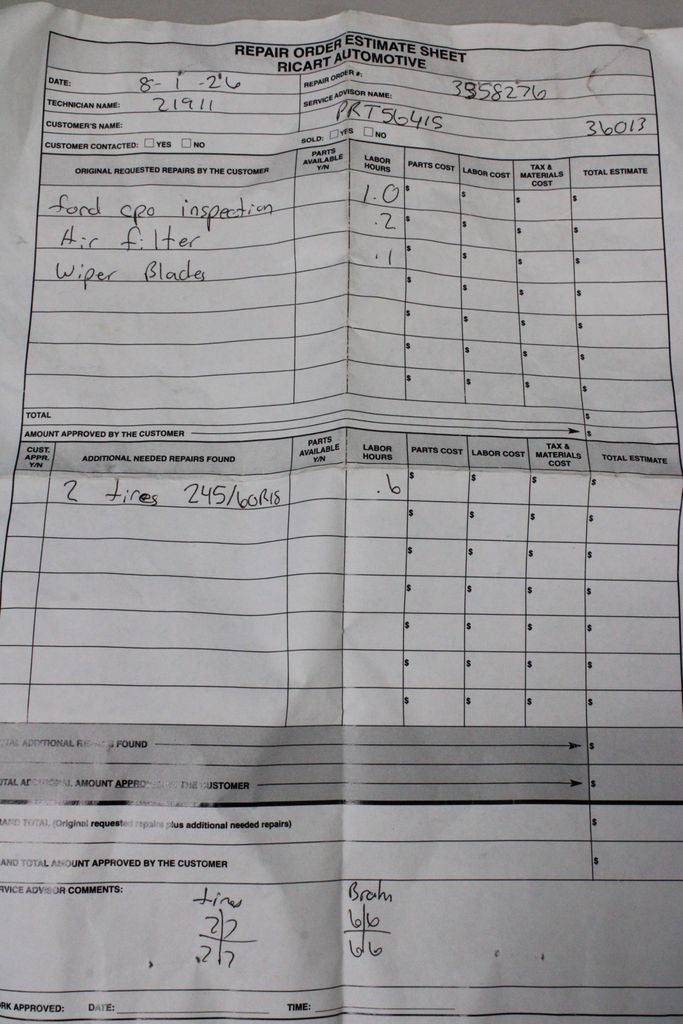 REPAIR ORDER ESTIMATE SHEET
RICART AUTOMOTIVE
DATE: 8-1-26 REPAIR ORDER #: 3958276
TECHNICIAN NAME: 21911 SERVICE ADVISOR NAME: PRT56415
CUSTOMER'S NAME: 36013
CUSTOMER CONTACTED: YES NO SOLD: YES NO
ORIGINAL REQUESTED REPAIRS BY THE CUSTOMER PARTS AVAILABLE Y/N LABOR HOURS PARTS COST LABOR COST TAX & MATERIALS COST TOTAL ESTIMATE
ford cpo inspection 1.0 $ $ $ $
Air filter .2 $ $ $ $
Wiper Blades .1 $ $ $ $
$ $ $ $
$ $ $ $
$ $ $ $
$ $ $ $
TOTAL $
AMOUNT APPROVED BY THE CUSTOMER $
CUST. APPR. Y/N ADDITIONAL NEEDED REPAIRS FOUND PARTS AVAILABLE Y/N LABOR HOURS PARTS COST LABOR COST TAX & MATERIALS COST TOTAL ESTIMATE
2 tires 245/60R18 .6 $ $ $ $
$ $ $ $
$ $ $ $
$ $ $ $
$ $ $ $
$ $ $ $
$ $ $ $
ADDITIONAL FOUND $
AMOUNT THE CUSTOMER $
TOTAL (Original requested repairs plus additional needed repairs) $
AND TOTAL AMOUNT APPROVED BY THE CUSTOMER $
RVICE ADVISOR COMMENTS: tires
6 6
6 6
RK APPROVED: DATE: TIME: